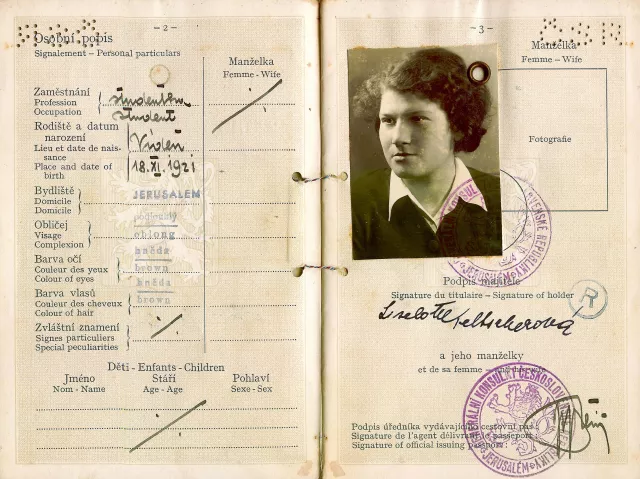 – 2 –
Osobní popis
Signalement – Personal particulars
Manželka
Femme - Wife
Zaměstnání
Profession
Occupation
studentka
student
Rodiště a datum
narození
Lieu et date de nais-
sance
Place and date of
birth
Vídeň
18.XI.1921
Bydliště
Domicile
Domicile
JERUSALEM
Obličej
Visage
Complexion
podlouhlý
oblong
Barva očí
Couleur des yeux
Colour of eyes
hnědá
brown
Barva vlasů
Couleur des cheveux
Colour of hair
hnědá
brown
Zvláštní znamení
Signes particuliers
Special peculiarities
Děti - Enfants - Children
Jméno
Nom - Name
Stáří
Age - Age
Pohlaví
Sexe - Sex
– 3 –
Manželka
Femme – Wife
Fotografie
KONSUL
SLOVENSKÉ REPUBLIKY
JERUSALEM
Podpis majitele
Signature du titulaire – Signature of holder
R
a jeho manželky
et de sa femme – and his wife
GENERÁLNÍ KONSULÁT ČESKOSLOV
REPUBLIKY
JERUSALÉM
Podpis úředníka vydávajícího cestovní pas:
Signature de l'agent délivrant le passeport:
Signature of official issuing passport: